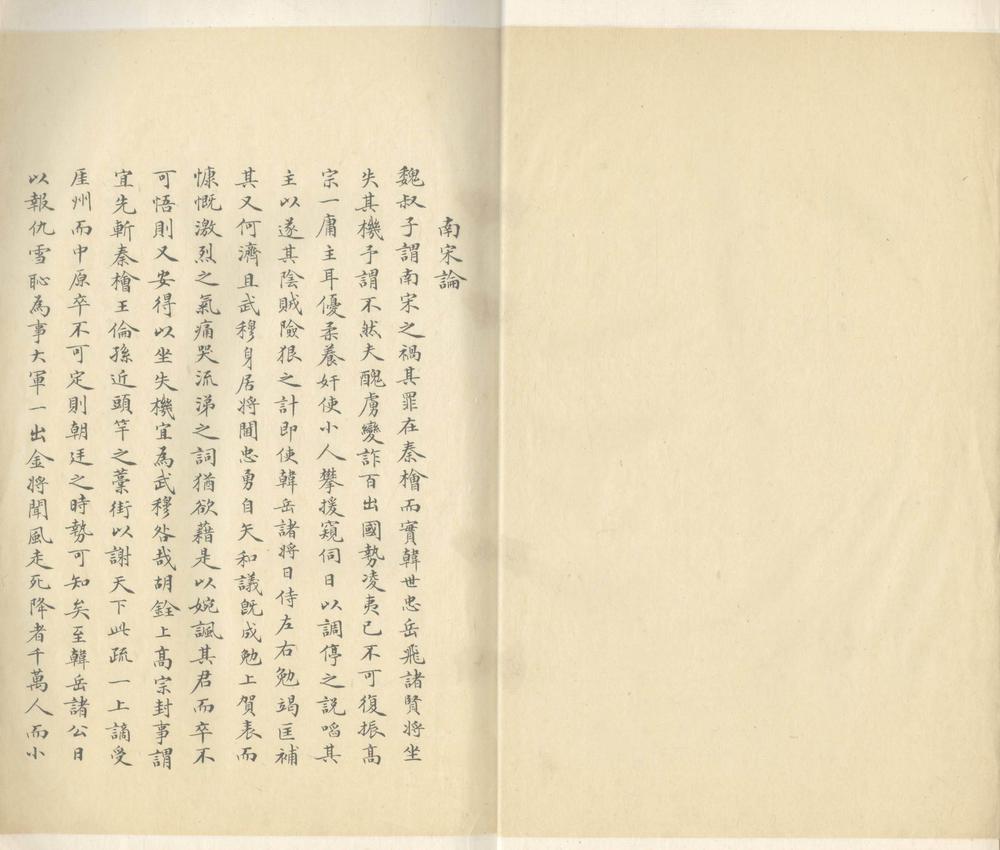 南宋論
魏叔子謂南宋之禍其罪在秦檜而實韓世忠岳飛諸賢將坐
失其機予謂不然夫醜虜變詐百出國勢凌夷已不可復振高
宗一庸主耳優柔養奸使小人攀援窺伺日以調停之說啗其
主以遂其陰賊險狠之計即使韓岳諸將日侍左右勉竭匡補
其又何濟且武穆身居將閫忠勇自矢和議既成勉上賀表而
慷慨激烈之氣痛哭流涕之詞猶欲藉是以婉諷其君而卒不
可悟則又安得以坐失機宜為武穆咎哉胡銓上高宗封事謂
宜先斬秦檜王倫孫近頭竿之藁街以謝天下此疏一上謫受
厓州而中原卒不可定則朝廷之時勢可知矣至韓岳諸公日
以報仇雪恥為事大軍一出金將聞風走死降者千萬人而小